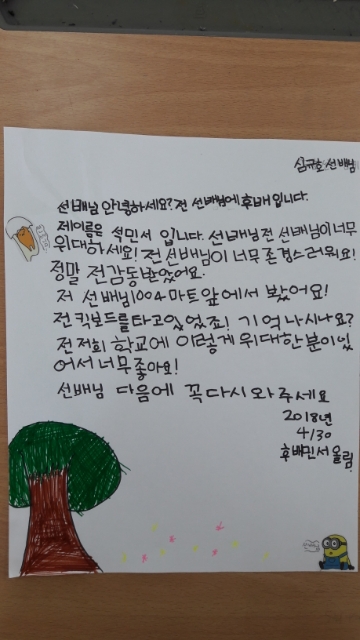 심규호 선배님
선배님 안녕하세요? 전 선배님에 후배 입니다.
제이름은 석민서 입니다. 선배님전 선배님이 너무
위대하세요! 전 선배님이 너무 존경스러워요!
정말 전감동받았어요.
저 선배님1004마트앞에서 봤어요!
전킥보드를타고있었죠! 기억나시나요?
전저희 학교에 이렇게 위대한분이있
어서너무좋아요!
선배님 다음에 꼭다시와주세요
2018년
4/30
후배민서올림